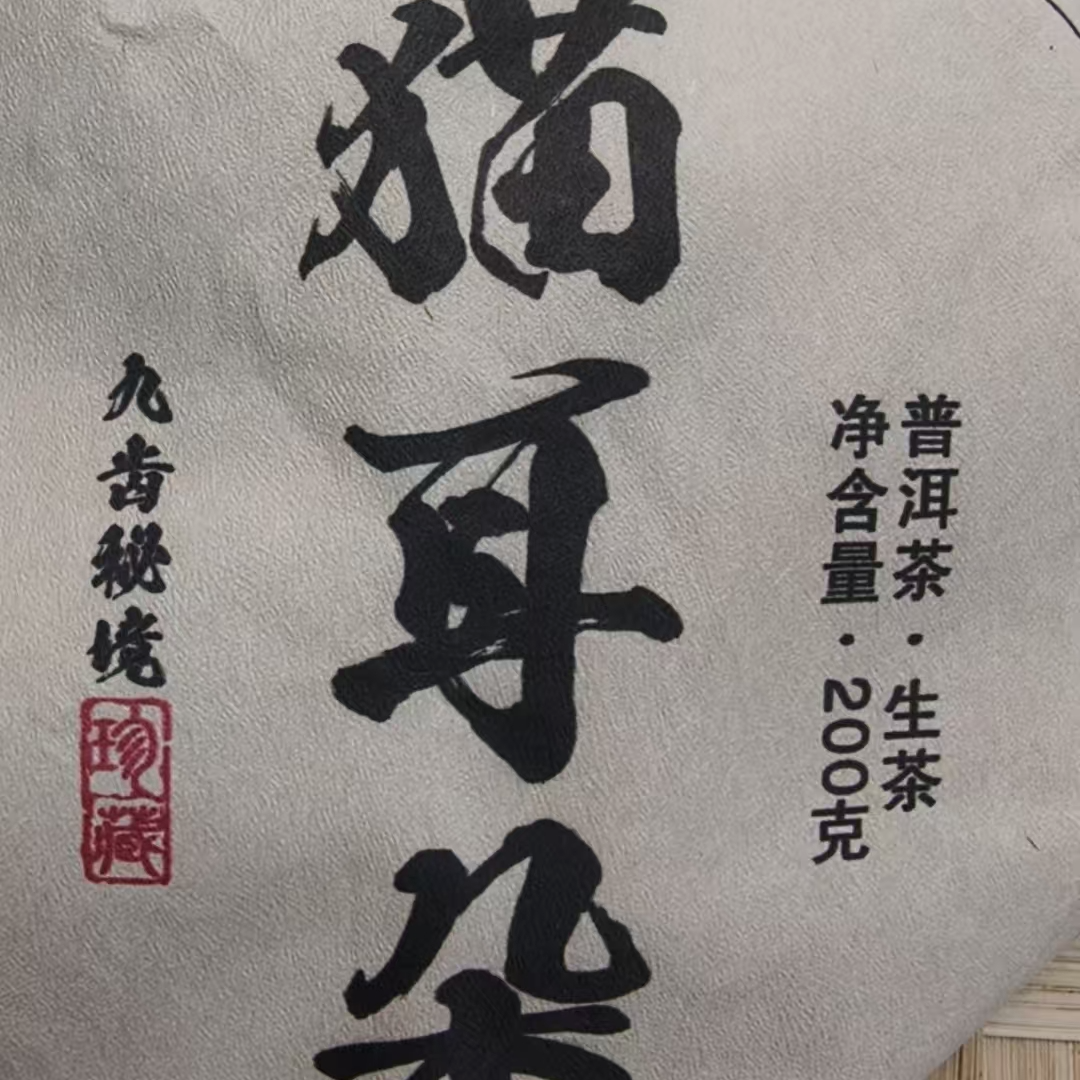 普洱茶·生茶
净含量·200克
猫耳朵
九齿秘境
珍藏